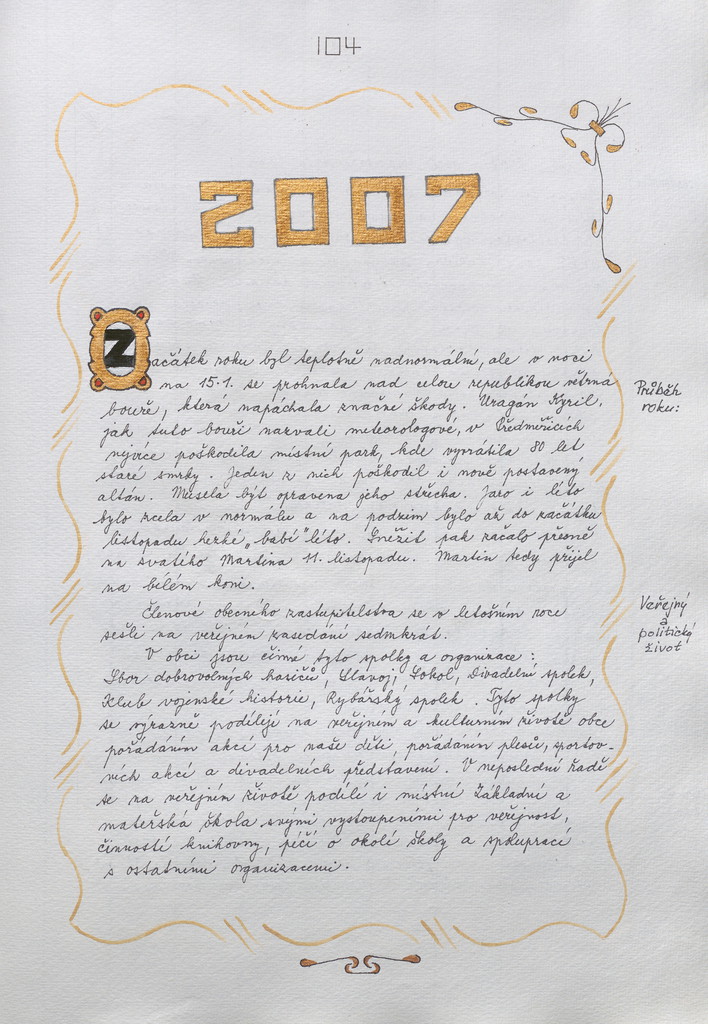 104
2007
Začátek roku byl teplotně nadnormální, ale v noci
na 15.1. se prohnala nad celou republikou větrná
bouře, která napáchala značné škody. Uragán Kyril,
jak tuto bouři nazvali meteorologové, v Předměřicích
nejvíce poškodila místní park, kde vyvrátila 80 let
staré smrky. Jeden z nich poškodil i nově postavený
altán. Musela být opravena jeho střecha. Jaro i léto
bylo zcela v normálu a na podzim bylo až do začátku
listopadu hezké „babí“ léto. Sněžit pak začalo přesně
na svatého Martina 11. listopadu. Martin tedy přijel
na bílém koni.
Průběh
roku:
Členové obecného zastupitelstva se v letošním roce
sešli na veřejném zasedání sedmkrát.
V obci jsou činné tyto spolky a organizace:
Sbor dobrovolných hasičů, Slavoj, Sokol, Divadelní spolek,
Klub vojenské historie, Rybářský spolek. Tyto spolky
se výrazně podílejí na veřejném a kulturním životě obce
pořádáním akcí pro naše děti, pořádáním plesů, sportov-
ních akcí a divadelních představení. V neposlední řadě
se na veřejném životě podílí i místní Základní a
mateřská škola svými vystoupeními pro veřejnost,
činností knihovny, péčí o okolí školy a spoluprací
s ostatními organizacemi.
Veřejný
a
politický
život